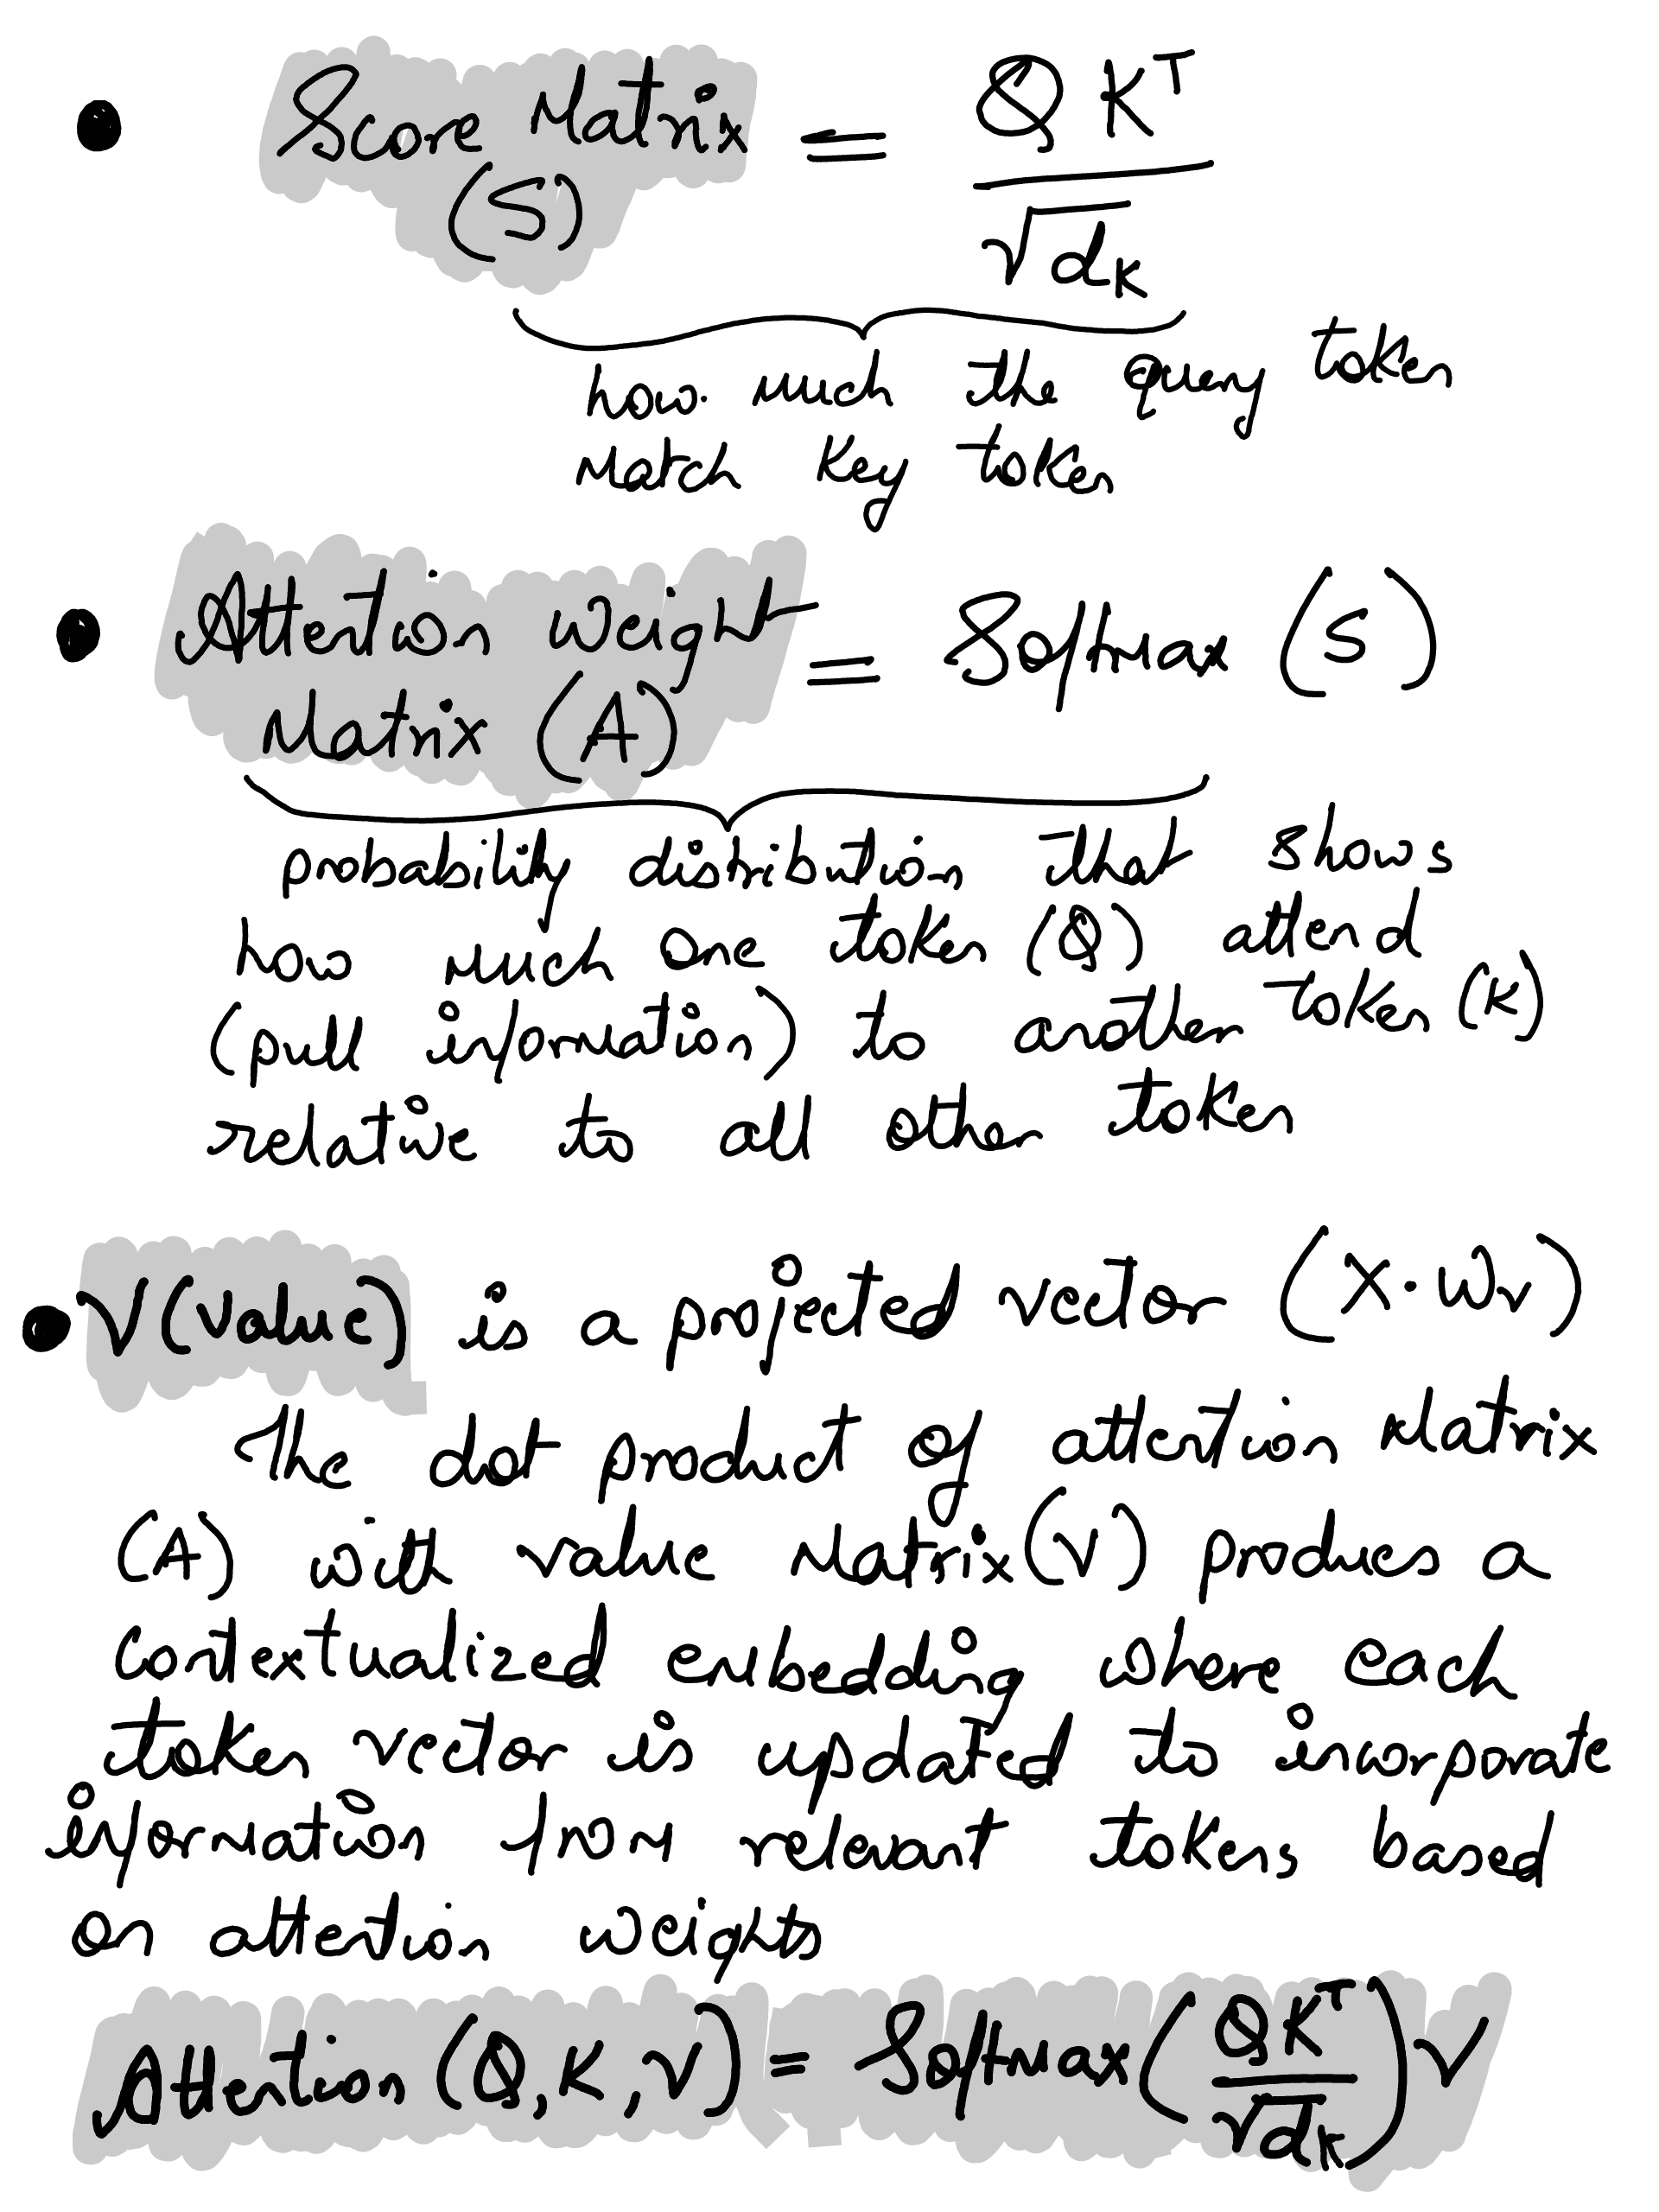 • Score Matrix (S) = Q K^T / √d_K
how much the query token
match key token
• Attention Weight Matrix (A) = Softmax (S)
probability distribution that shows
how much one token (Q) attend
(pull information) to another token (K)
relative to all other token
• V(Value) is a projected vector (X · W_V)
The dot product of attention Matrix
(A) with value Matrix (V) produces a
contextualized embedding where each
token vector is updated to incorporate
information from relevant tokens based
on attention weights
Attention (Q, K, V) = Softmax (QK^T / √d_K) V